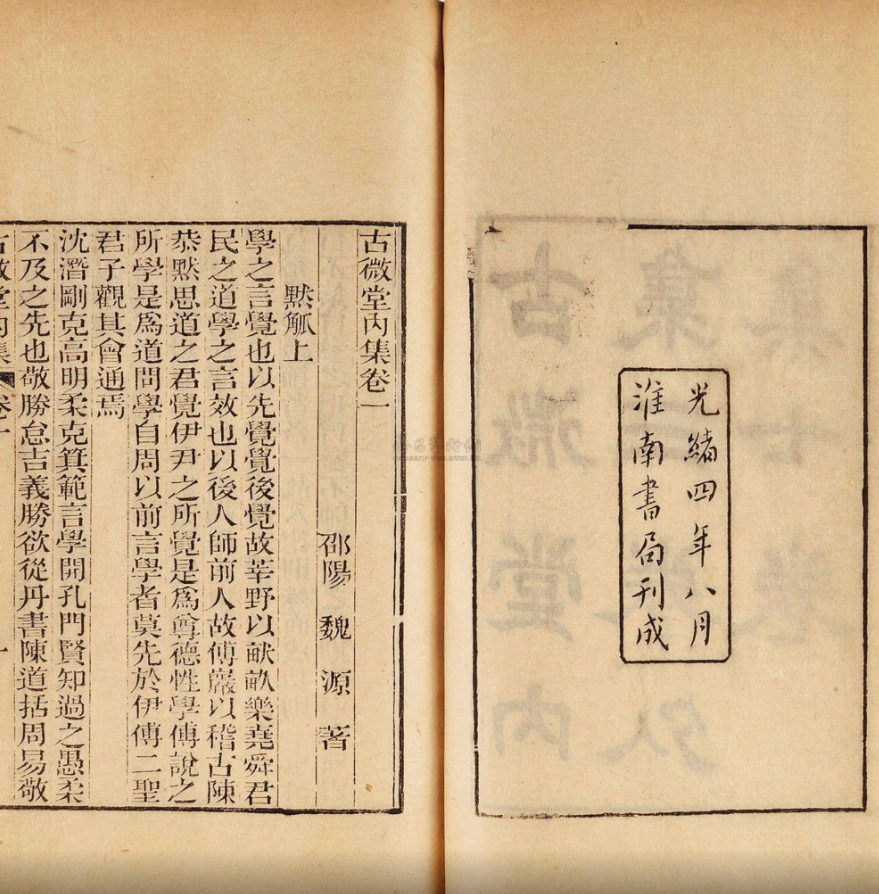 光緒四年八月
淮南書局刊成
古微堂內集卷一
邵陽 魏 源 著
默觚上
學之言覺也以先覺覺後覺故莘野以畎畝樂堯舜君
民之道學之言效也以後人師前人故傅巖以稽古陳
恭默思道之君覺伊尹之所覺是爲尊德性學傅說之
所學是爲道問學自周以前言學者莫先於伊傅二聖
君子觀其會通焉
沈潛剛克高明柔克箕範言學開孔門賢知過之愚柔
不及之先也敬勝怠吉義勝欲從丹書陳道括周易敬
古微堂內集 卷一 一